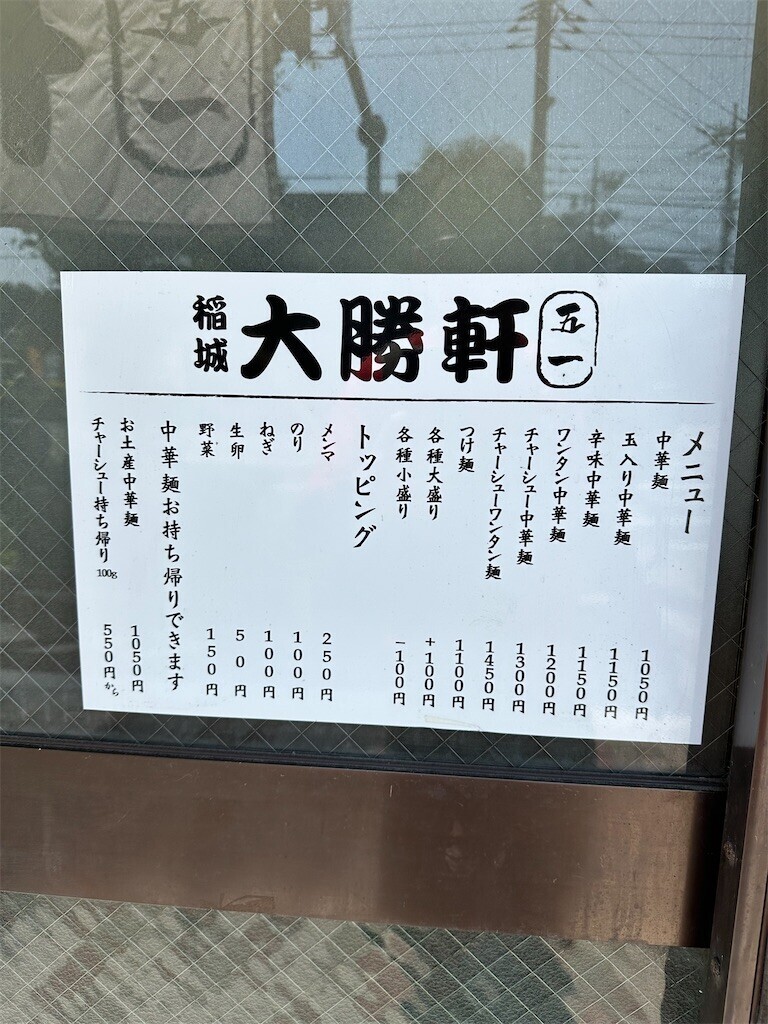 稲城 大勝軒 五一
メニュー
中華麺 1050円
玉入り中華麺 1150円
辛味中華麺 1150円
ワンタン中華麺 1200円
チャーシュー中華麺 1300円
チャーシューワンタン麺 1450円
つけ麺 1100円
各種大盛り +100円
各種小盛り -100円
トッピング
メンマ 250円
のり 100円
ねぎ 100円
生卵 50円
野菜 150円
中華麺お持ち帰りできます
お土産中華麺 1050円
チャーシュー持ち帰り 100g 550円から